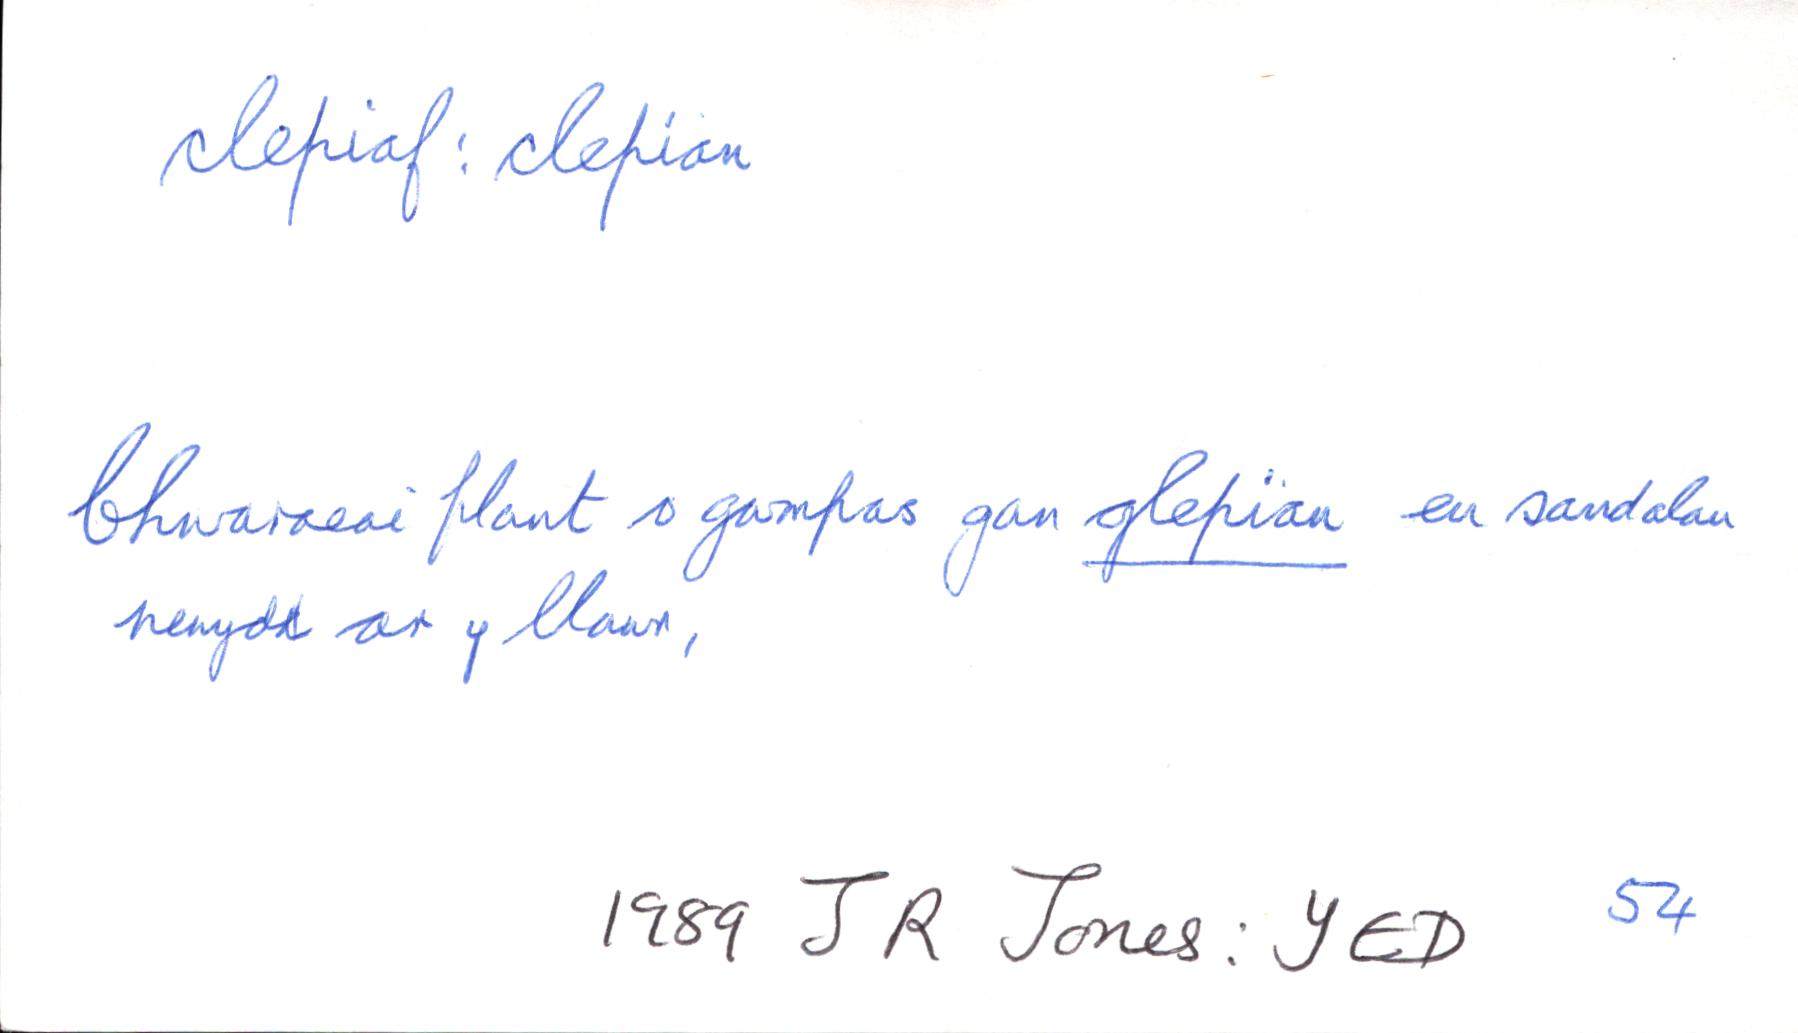 clepiaf: clepian
Chwaraeai plant o gwmpas gan glepian eu sandalau
newydd ar y llawr,
1989 J R Jones: YED 54